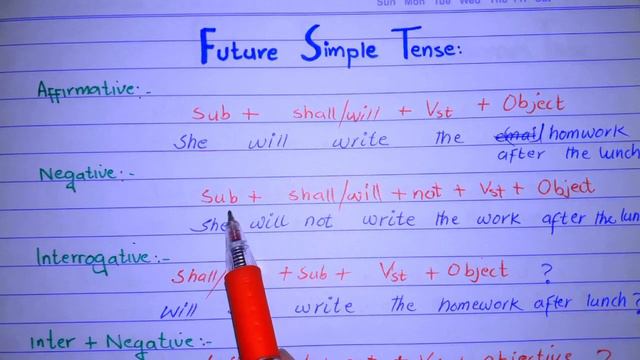 Sun Mon Tue Wed Thu Fri Sat
Future Simple Tense:
Affirmative:-
Sub + shall/will + Vst + Object
She will write the email/ homwork
after the lunch
Negative:-
Sub + shall/will + not + Vst + Object
She will not write the work after the lun
Interrogative:-
Shall/ + Sub + Vst + Object ?
Will write the homework after lunch?
Inter + Negative:-